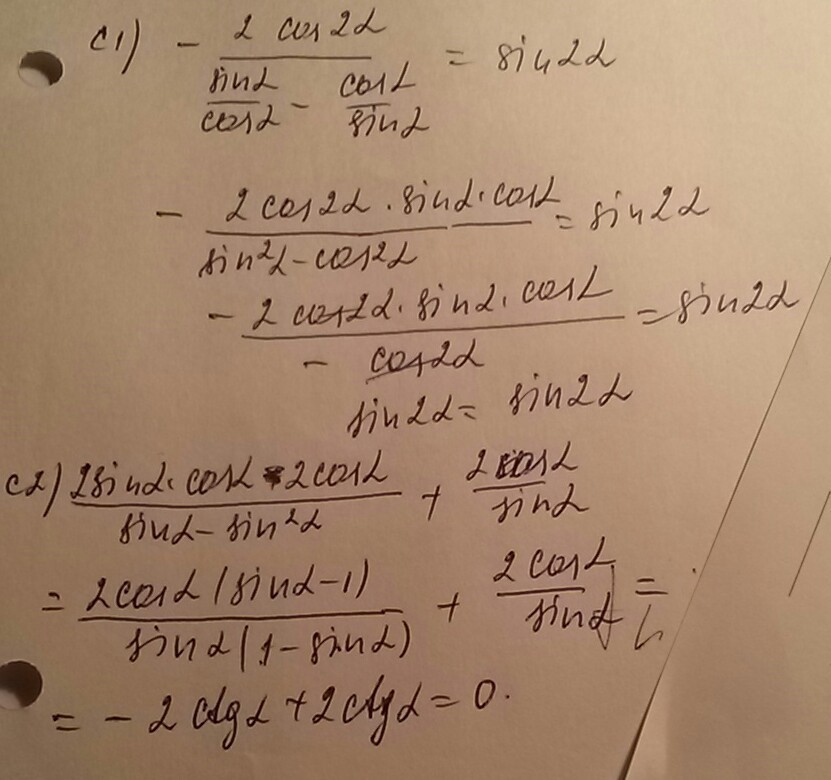 C1) - (2 cos2α) / (sinα/cosα - cosα/sinα) = sin2α
- (2cos2α · sinα · cosα) / (sin²α - cos²α) = sin2α
- (2cos2α · sinα · cosα) / (- cos2α) = sin2α
sin2α = sin2α
C2) (2sinα · cosα - 2cosα) / (sinα - sin²α) + 2cosα/sinα
= (2cosα(sinα-1)) / (sinα(1-sinα)) + 2cosα/sinα =
= - 2ctgα + 2ctgα = 0.